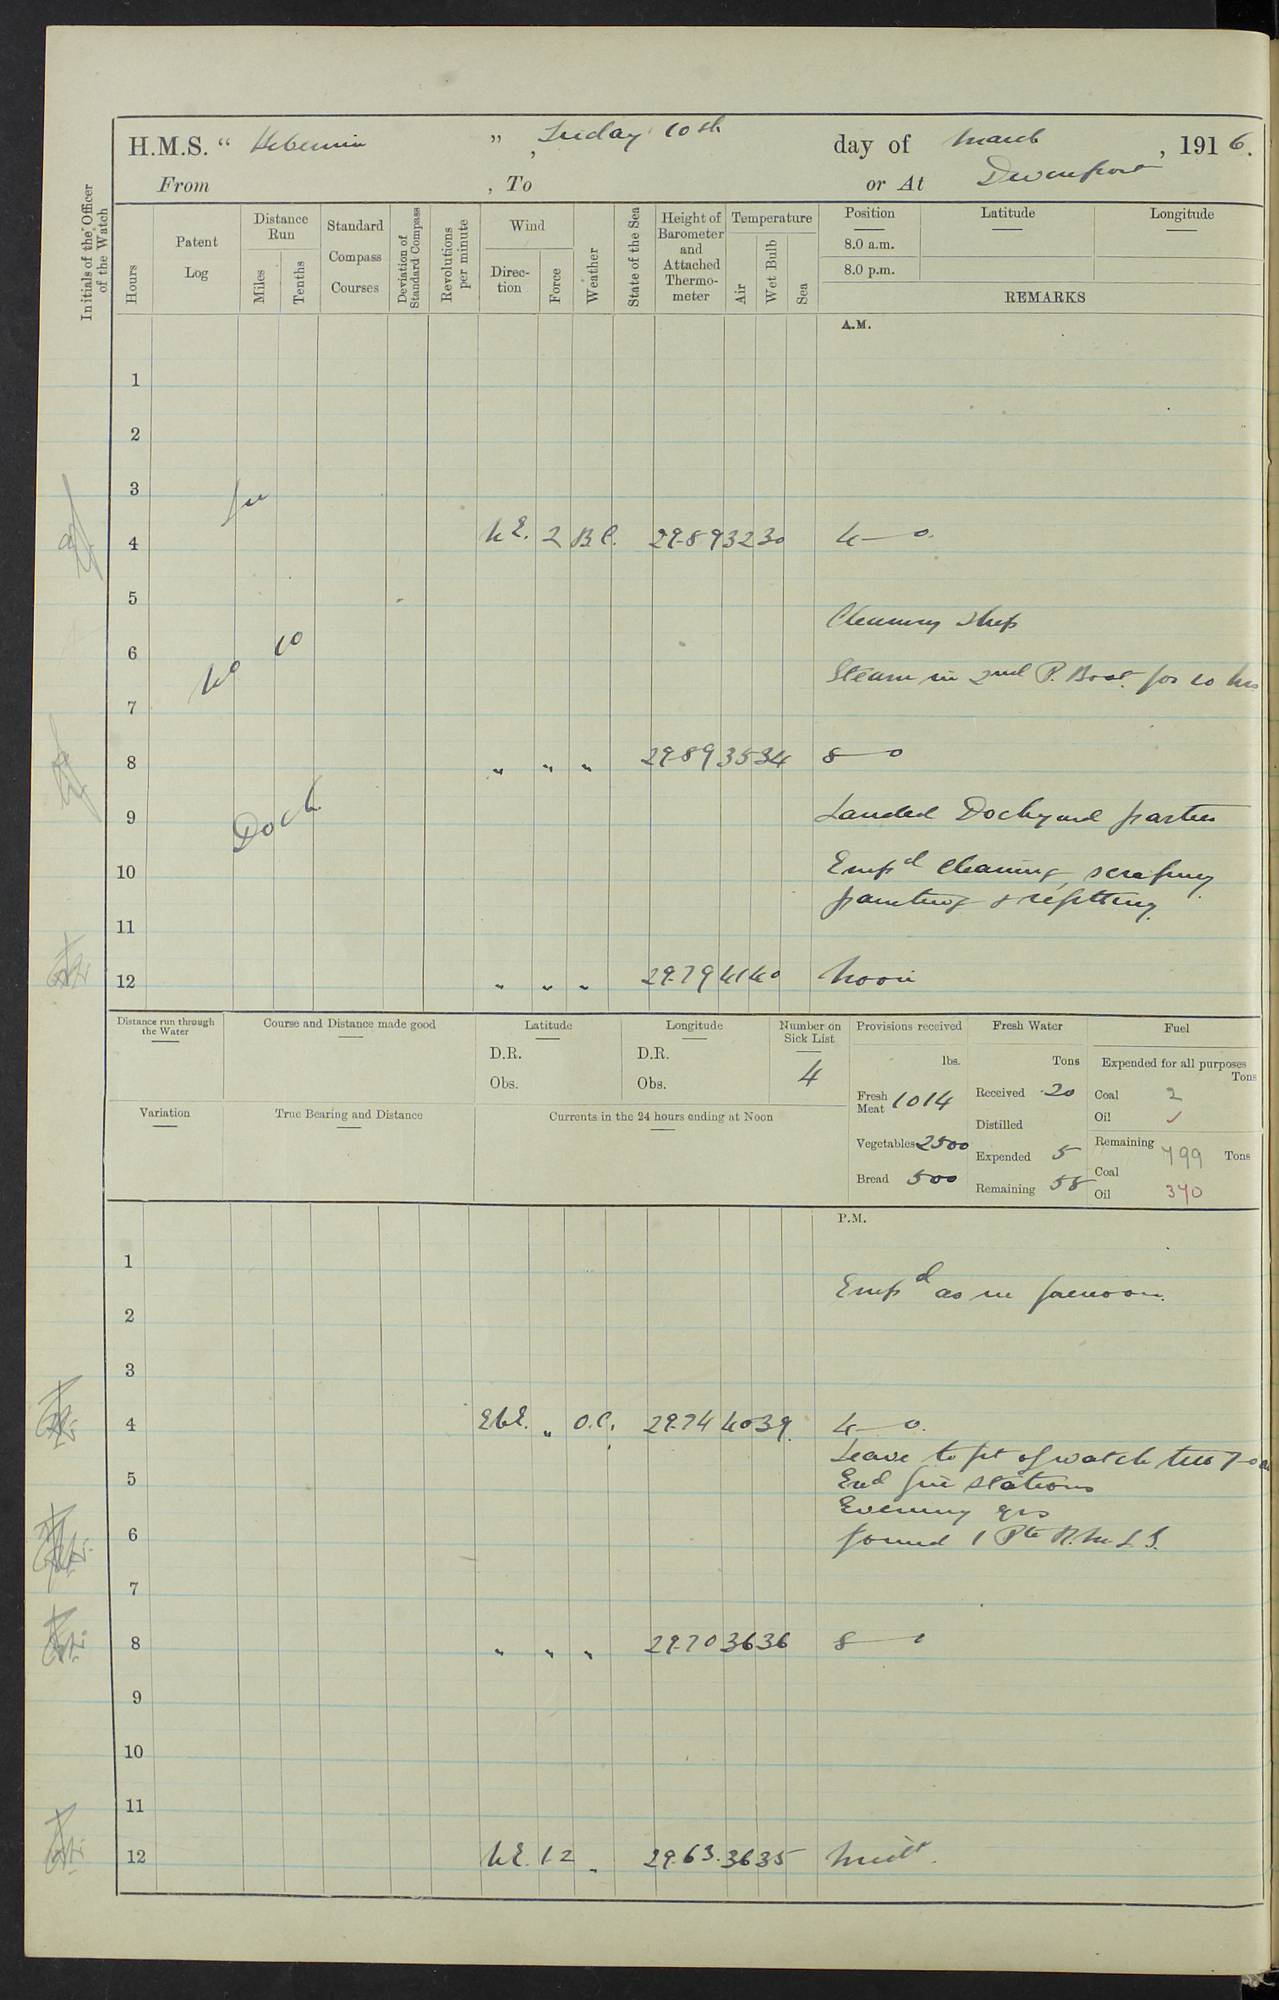 H.M.S. “ Hibernia ” , Friday 10th day of March , 1916.
From , To or At Devonport
Initials of the Officer of the Watch
Hours
Patent Log
Distance Run
Miles
Tenths
Standard Compass Courses
Deviation of Standard Compass
Revolutions per minute
Wind
Direction
Force
Weather
State of the Sea
Height of Barometer and Attached Thermometer
Temperature
Air
Wet Bulb
Sea
Position Latitude Longitude
8.0 a.m.
8.0 p.m.
REMARKS
A.M.
1
2
3
In
4 NE. 2 B.C. 29.89 32 30 4—0.
5
Cleaning Ship
6 No 10
Steam in 2nd P. Boat for 10 hrs
7
8 " " " 29.89 35 34 8—0
9 Dock Landed Dockyard parties
10 Empd cleaning, scraping
painting & refitting.
11
12 " " " 29.79 41 40 Noon
Distance run through the Water
Course and Distance made good
Latitude
D.R.
Obs.
Longitude
D.R.
Obs.
Number on Sick List
4
Variation
True Bearing and Distance
Currents in the 24 hours ending at Noon
Provisions received
lbs.
Fresh Meat 1014
Vegetables 2500
Bread 500
Fresh Water
Tons
Received 20
Distilled
Expended 5
Remaining 58
Fuel
Expended for all purposes
Tons
Coal 2
Oil ✓
Remaining
Tons
Coal 799
Oil 370
P.M.
1
Empd as in forenoon.
2
3
4 EbE. " O.C. 29.74 40 39. 4—0.
Leave to pt of watch till 7-0
5 Exd fire stations
Evening qrs
6 Joined 1 Pte R.M.L.I.
7
8 " " " 29.70 36 36 8—0
9
10
11
12 NE. 1-2 " 29.63. 36 35 Midt.